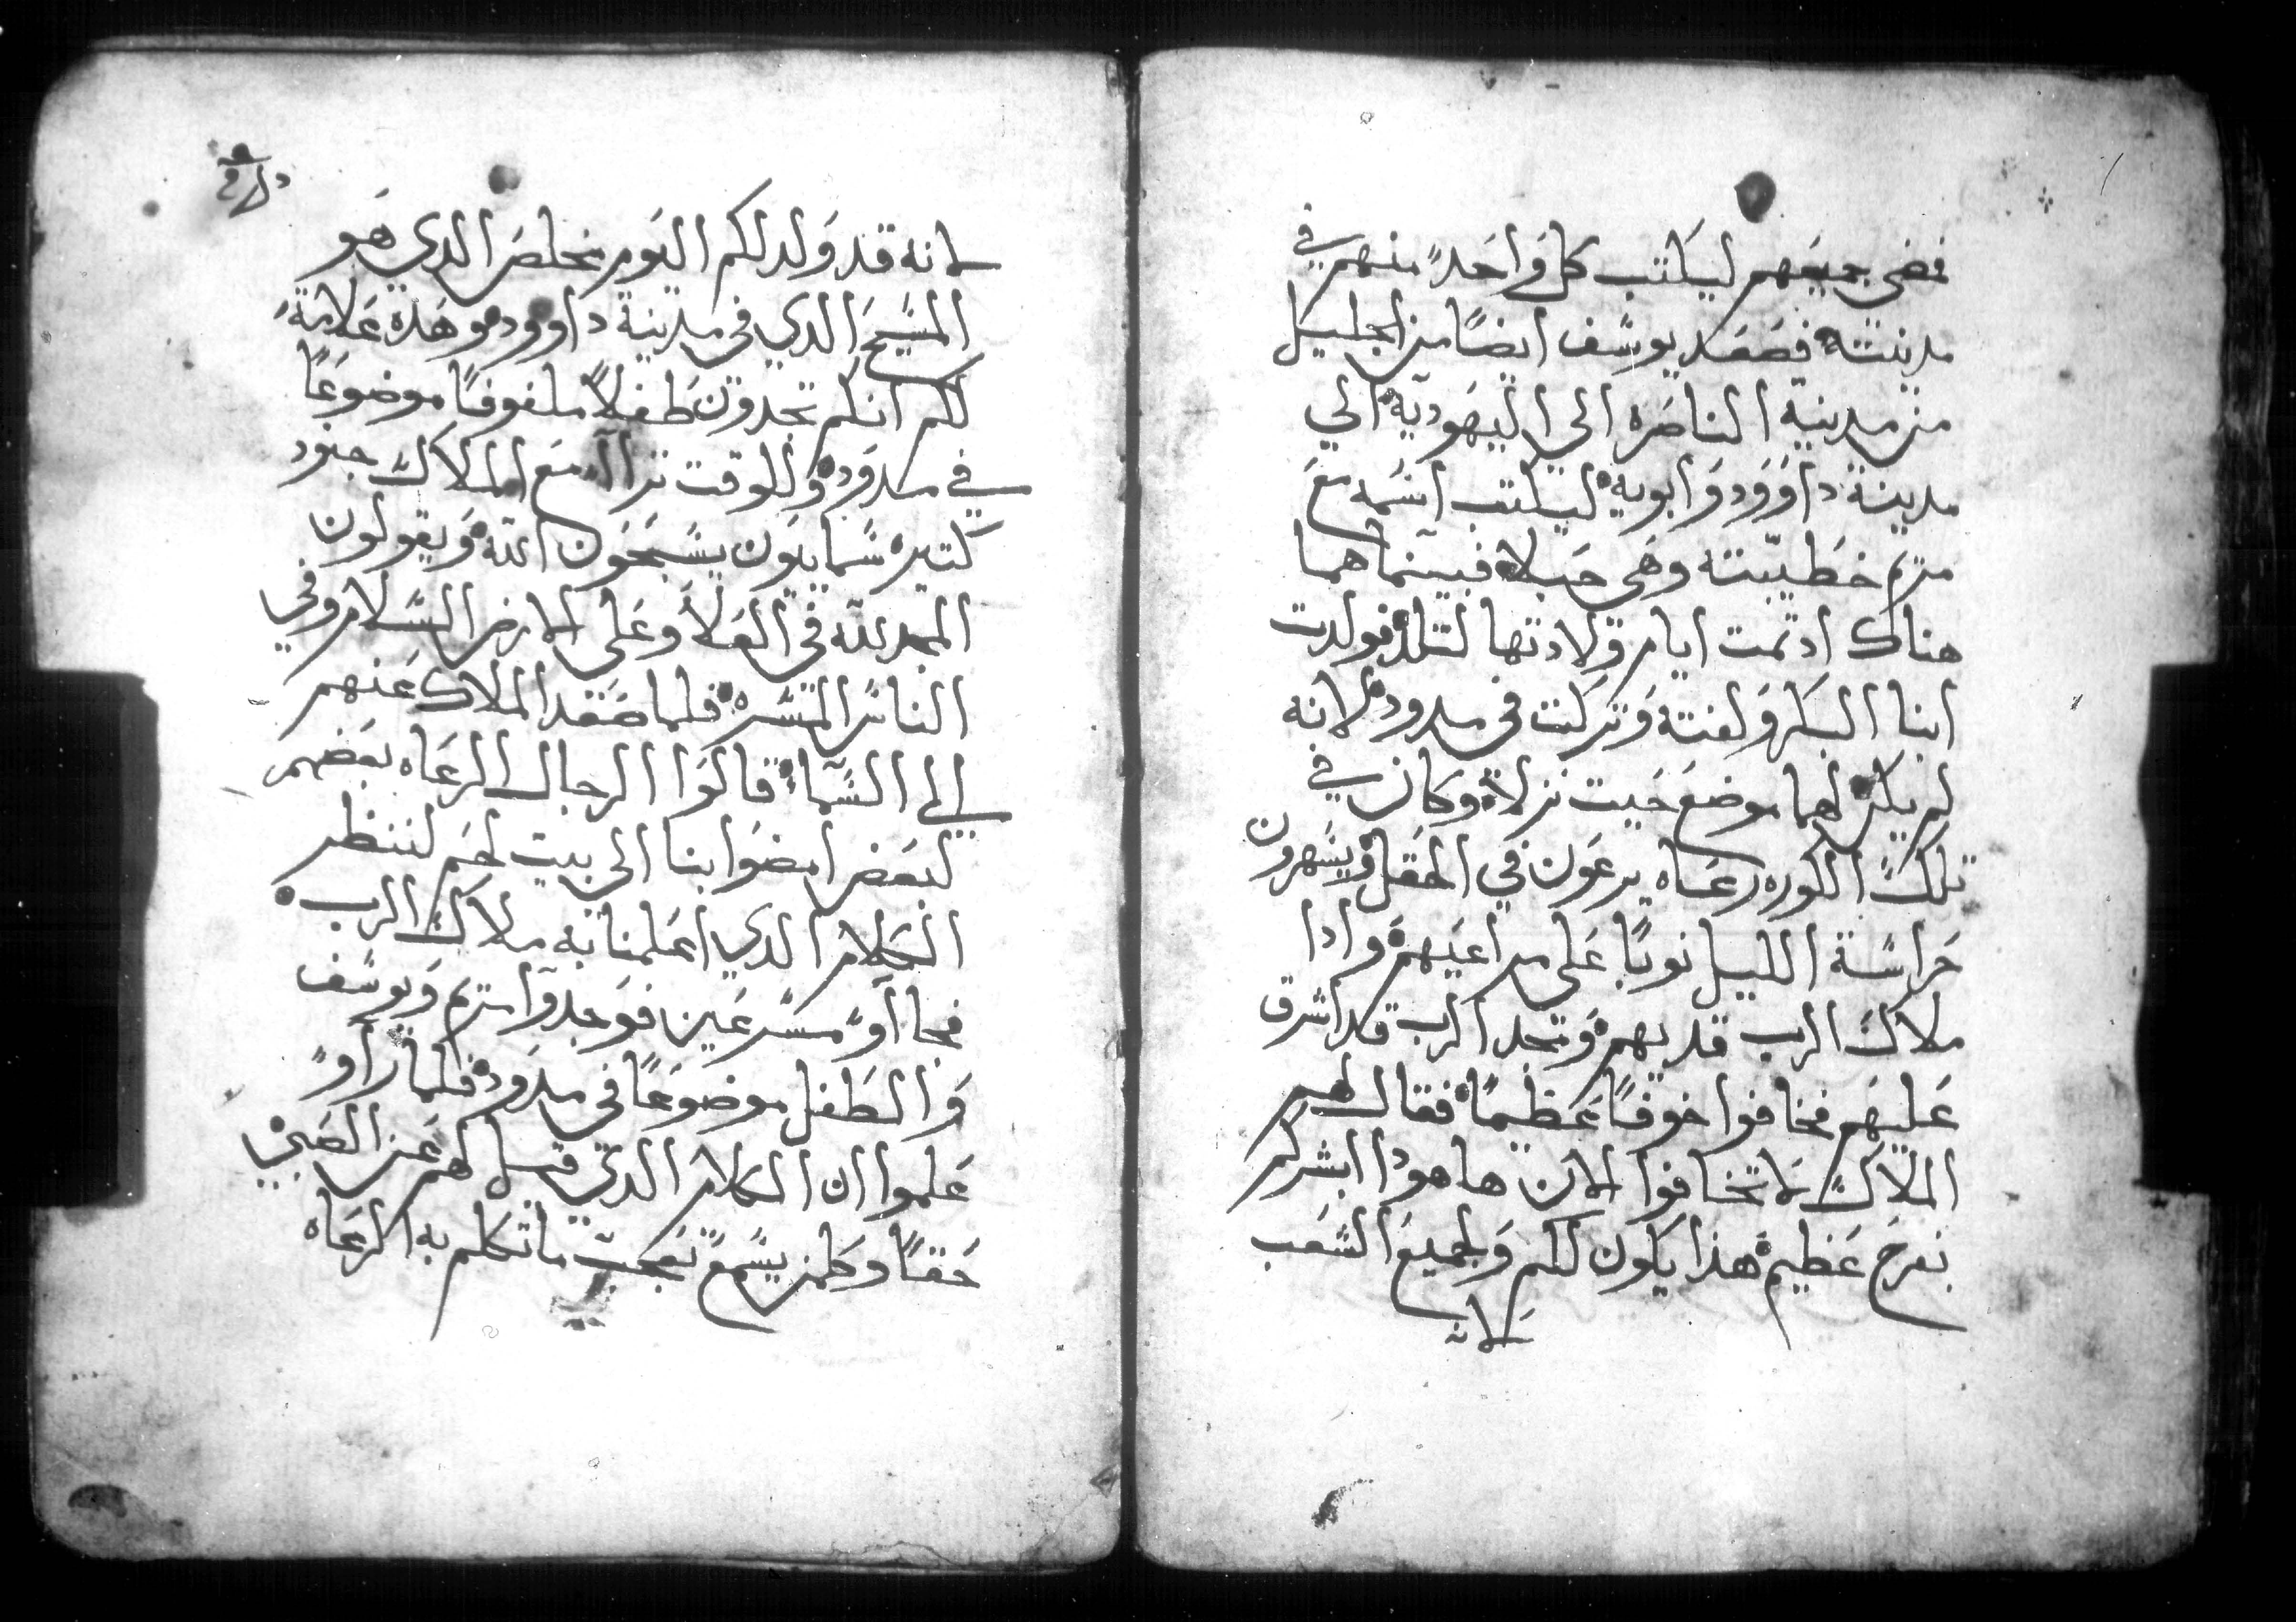 فمضى جميعهم ليكتب كل واحد منهم في
مدينته فصعد يوسف ايضًا من الجليل
من مدينة الناصره الى اليهودية الي
مدينة داوود وابويه ليكتب اسمه مع
مريم خطيبته وهى حبلا فبينما هما
هناك ادتمت ايام ولادتها لتلد فولدت
ابنا البكر ولفته وتركت في مدود لانه
لم يكن لهما موضع حيت نزلا وكان في
تلك الكوره رعاه يرعون في الحقل ويسهرون
حراسة الليل نوبًا على مراعيهم وادا
ملاك الرب قد بهم ومجد الرب قد اشرق
عليهم فخافوا خوفًا عظيمًا فقال لهم
الملاك لا تخافوا الان هاهودا ابشركم
بفرح عظيم هذا يكون لكم ولجميع الشعب
لانه
لانه قد ولد لكم اليوم مخلص الدي هو
المسيح الدي في مدينة داوود وهده علامة
لكم انكم تجدون طفلاً ملفوفًا موضوعًا
في مدود وللوقت ترااا مع الملاك جنود
كتيره سمايون يسبحون الله ويقولون
المجد لله في العلا وعلى الارض السلام وفي
الناس المسره فلما صعد الملاك عنهم
الى السماء قالوا الرجال الرعاه بعضهم
لبعض امضوا بنا الى بيت لحم لننظر
الكلام الدي اعلمنا به ملاك الرب
فجااو مسرعين فوجدوا مريم ويوسف
والطفل موضوعًا في مدود فلما راو
علموا ان الكلام الدي قيل لهم عن الصبي
حقًا وكلمن يسمع تعجب ما تكلم به الرعاه